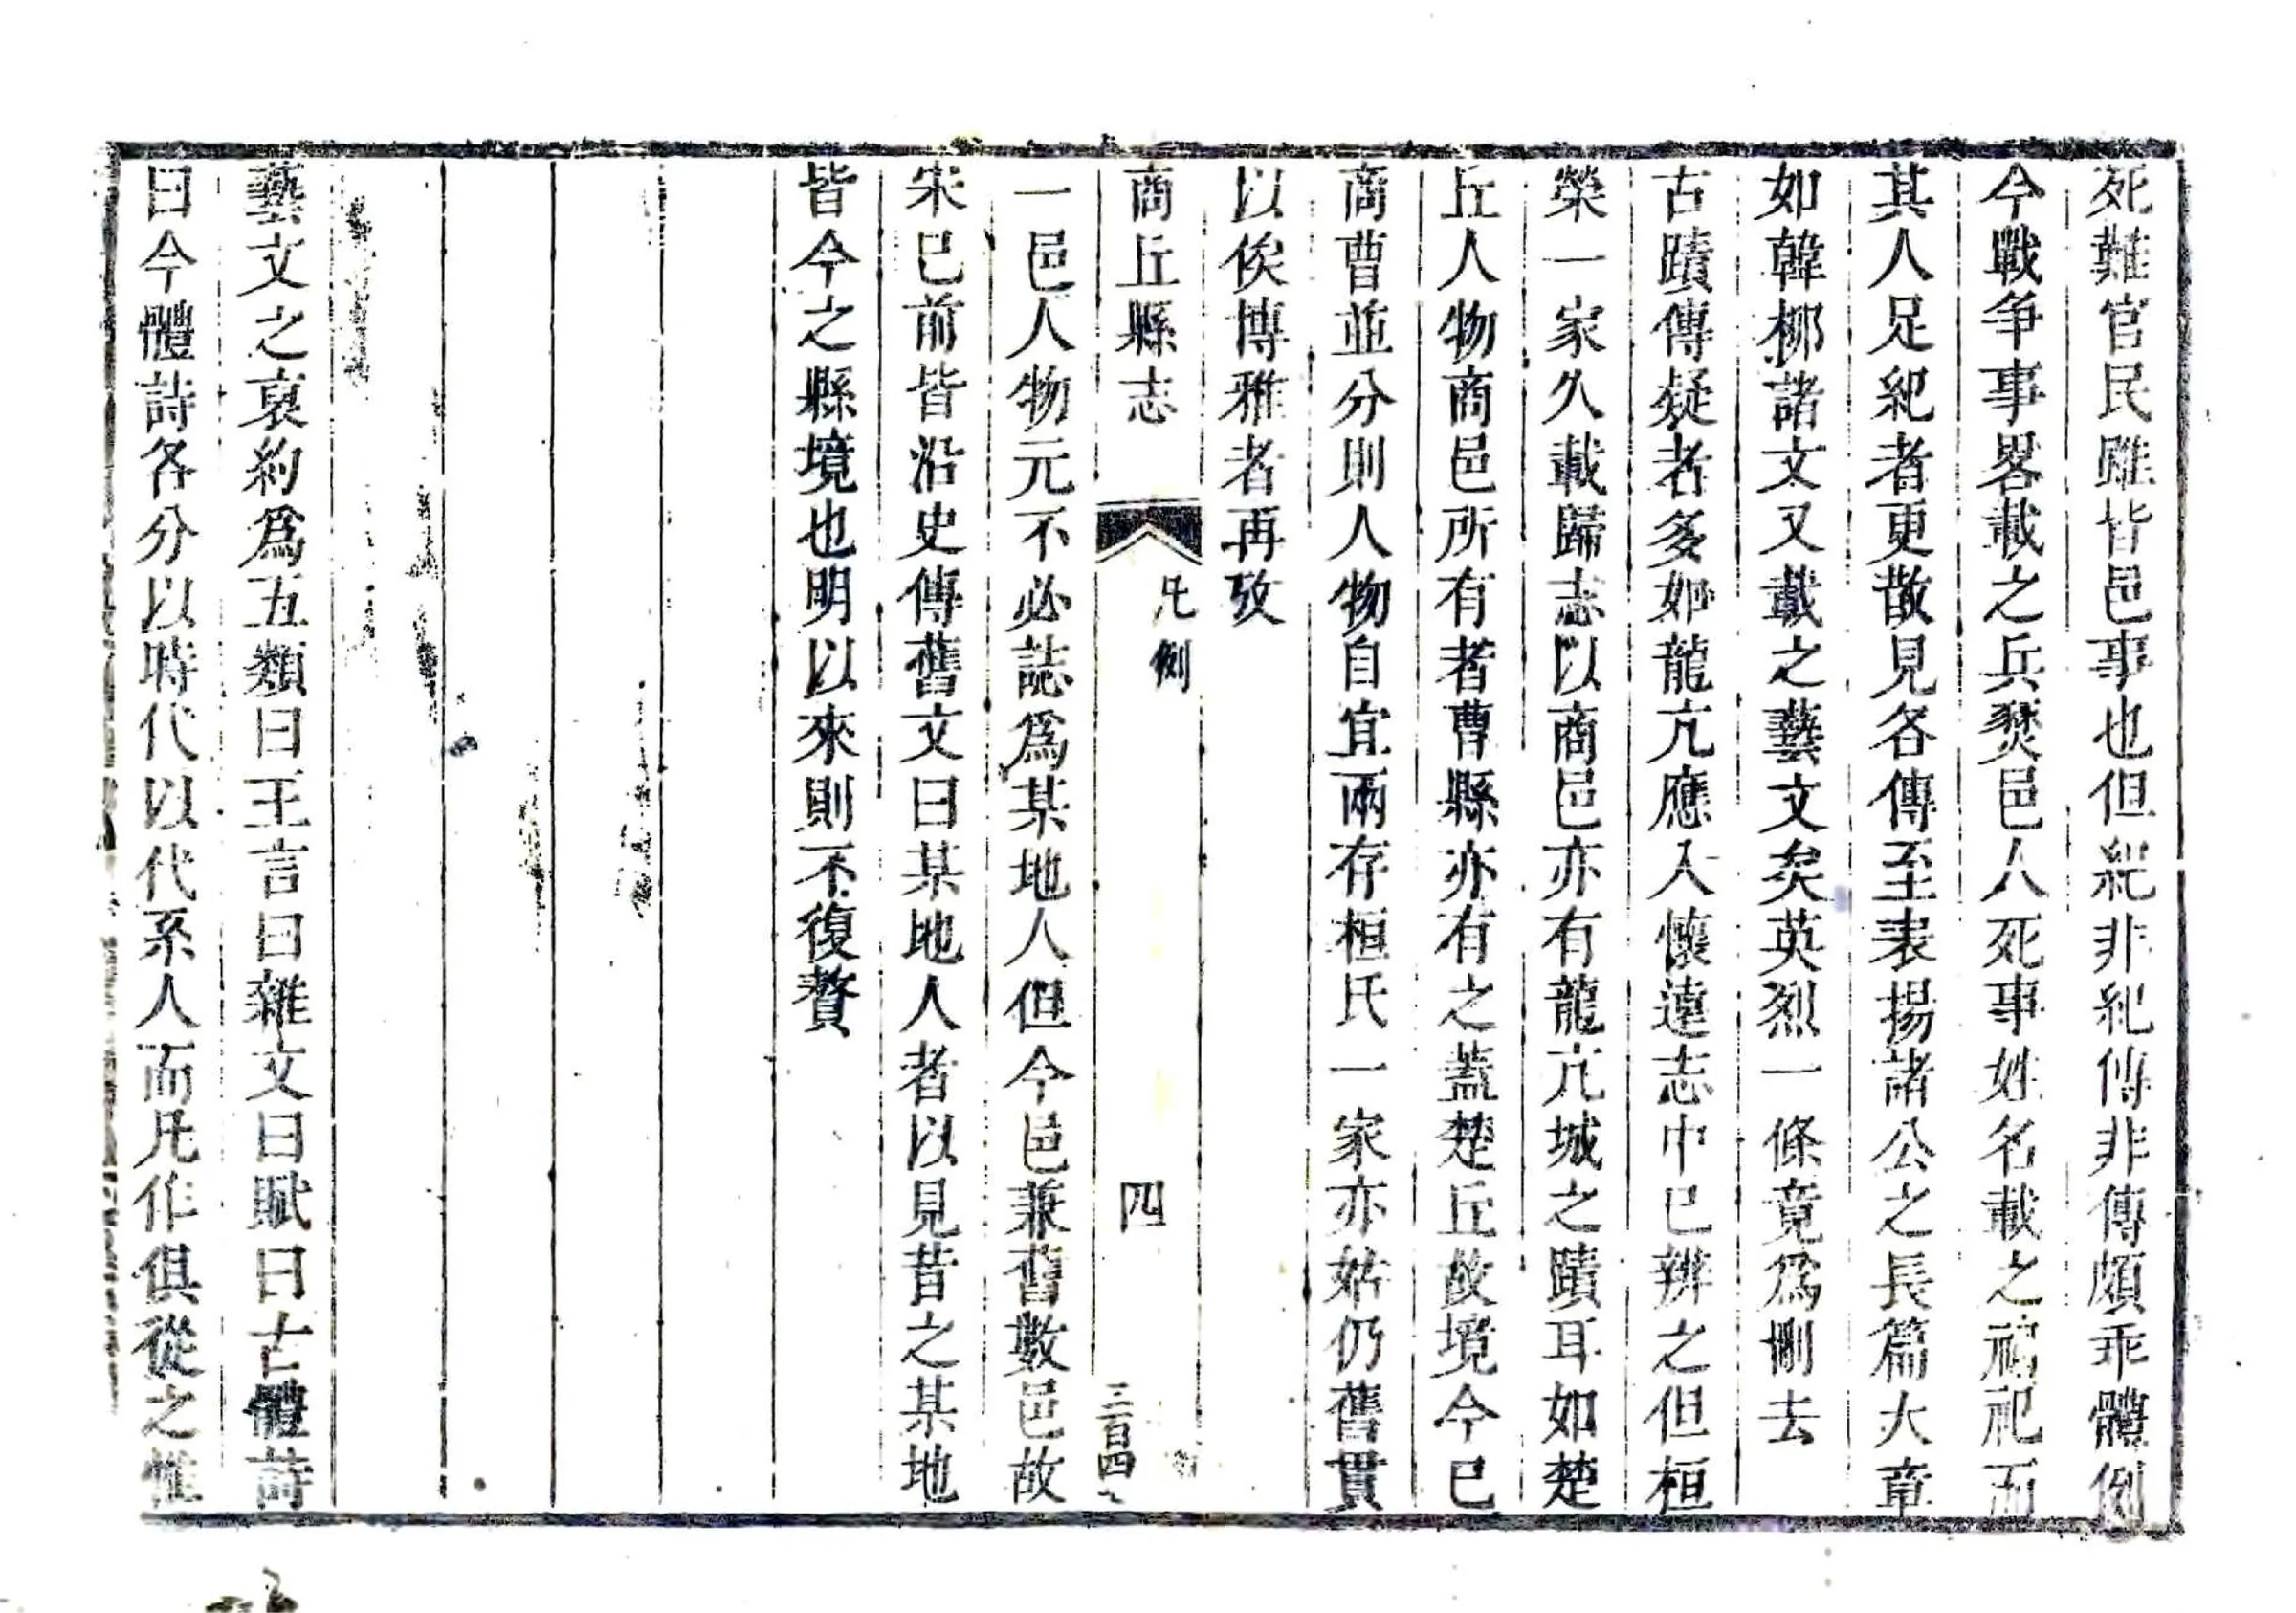 死難官民雖皆邑事也但紀非紀傳非傳頗乖體例
今戰争事畧載之兵燹邑人死事姓名載之祠祀而
其人足紀者更散見各傳至表揚諸公之長篇大章
如韓栁諸文又載之藝文矣英烈一條竟爲刪去
古蹟傳疑者多如龍亢應入懷遠志中已辨之但桓
榮一家久載歸志以商邑亦有龍亢城之蹟耳如楚
丘人物商邑所有者曹縣亦有之葢楚丘故境今已
商曹並分則人物自宜兩存桓氏一家亦姑仍舊貫
以俟博雅者再攷
商丘縣志 凡例 四 三百四
一邑人物元不必誌爲某地人但今邑兼舊數邑故
宋已前皆沿史傳舊文曰某地人者以見昔之某地
皆今之縣境也明以來則不復贅
藝文之裒約爲五類曰王言曰雜文曰賦曰古體詩
曰今體詩各分以時代以代系人而凡作俱從之惟